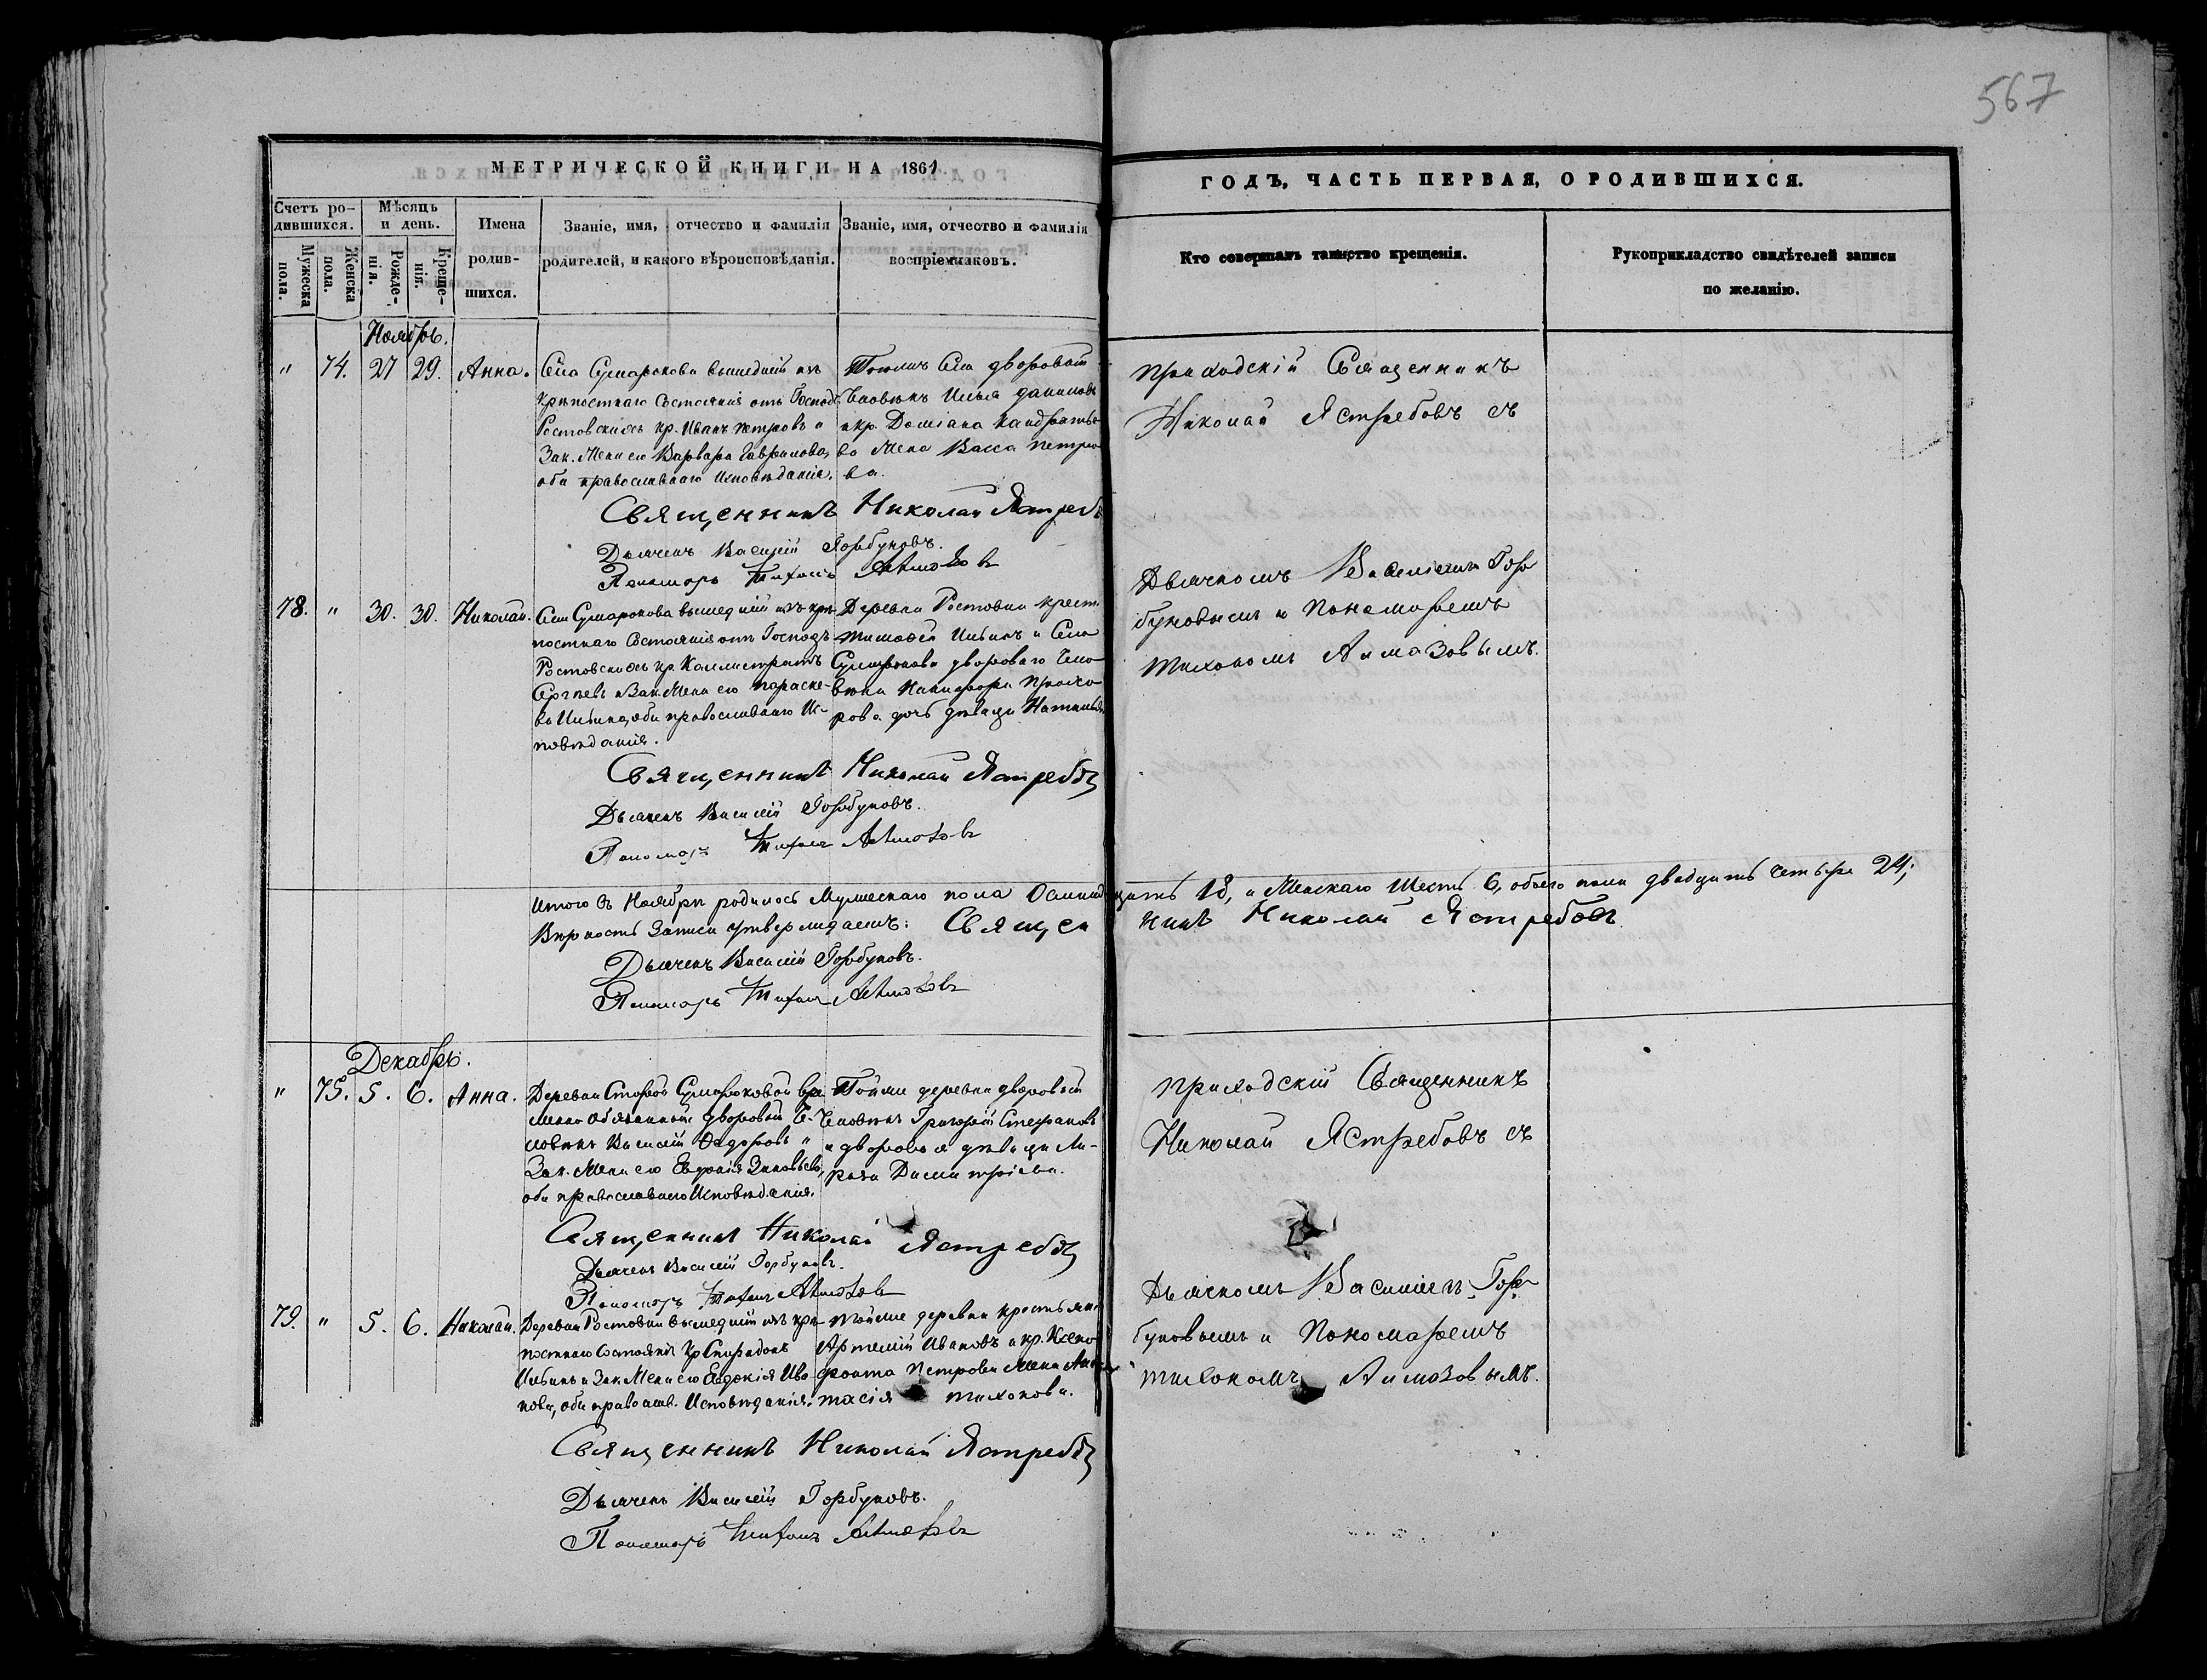 567
МЕТРИЧЕСКОЙ КНИГИ НА 1861
ГОДЪ, ЧАСТЬ ПЕРВАЯ, О РОДИВШИХСЯ.
Счетъ ро-
дившихся.
Мужеска
пола.
Женска
пола.
Мѣсяцъ
и день.
Рожде-
нія.
Креще-
нія.
Имена
родив-
шихся.
Званіе, имя, отчество и фамилія
родителей, и какого вѣроисповѣданія.
Званіе, имя, отчество и фамилія
воспріемниковъ.
Кто совершалъ таинство крещенія.
Рукоприкладство свидѣтелей записи
по желанію.
Ноябрь.
" 74. 27 29. Анна.
Села Сумарокова вышедшій изъ
крѣпостнаго состоянія отъ Господъ
Ростовскихъ кр. Иванъ Петровъ и
Зак. Жена его Варвара Гаврилова,
оба православнаго исповѣданія.
Тогожъ Села дворовой
Человѣкъ Илья Даниловъ
и кр. Домiана Кандратье-
ва Жена Васса Петро-
ва.
Приходскій Священникъ
Николай Ястребовъ съ
Священникъ Николай Ястребовъ
Дьячекъ Василій Горбуновъ.
Пономарь Тихонъ Алмазовъ
78. " 30. 30. Николай.
Села Сумарокова вышедшій изъ крѣ-
постнаго состоянія отъ Господъ
Ростовскихъ кр. Каллистратъ
Сергѣевъ и Зак. Жена его Параске-
ва Ильина, оба православнаго Ис-
повѣданія.
Деревни Ростовки крест.
Тимофей Ильинъ и Села
Сумарокова двороваго Чело-
вѣка Никифора Прохо-
рова дочь дѣвица Наталья.
Дьячкомъ Василіемъ Гор-
буновымъ и Пономаремъ
Тихономъ Алмазовымъ.
Священникъ Николай Ястребовъ
Дьячекъ Василій Горбуновъ.
Пономарь Тихонъ Алмазовъ
Итого въ Ноябрѣ родилось Мужескаго пола Осмнадцать 18, и Женскаго Шесть 6, обоего пола двадцать четыре 24;
Вѣрность записи утверждаемъ: Священникъ Николай Ястребовъ
Дьячекъ Василій Горбуновъ.
Пономарь Тихонъ Алмазовъ
Декабрь.
" 75. 5. 6. Анна.
Деревни Старой Сумароковой вре-
менно обязанный дворовый Че-
ловѣкъ Василій Ѳедоровъ и
Зак. Жена его Евдокія Зиновьева,
оба православнаго Исповѣданія.
Тойже деревни дворовый
Человѣкъ Григорій Стефановъ
и дворовая дѣвица Ли-
 Димитріева.
Приходскій Священникъ
Николай Ястребовъ съ
Священникъ Николай Ястребовъ
Дьячекъ Василій Горбуновъ.
Пономарь Тихонъ Алмазовъ
79. " 5. 6. Николай.
Деревни Ростовки вышедшій изъ крѣ-
постнаго состоянія кр. Спиридонъ
Ильинъ и Зак. Жена его Евдокія Ива-
нова, оба православ. Исповѣданія.
Тойже деревни крестьян.
Артемій Ивановъ и кр. Ксено-
фонта Петрова Жена Анас-
тасія Тихонова.
Дьячкомъ Василіемъ Гор-
буновымъ и Пономаремъ
Тихономъ Алмазовымъ.
Священникъ Николай Ястребовъ
Дьячекъ Василій Горбуновъ.
Пономарь Тихонъ Алмазовъ